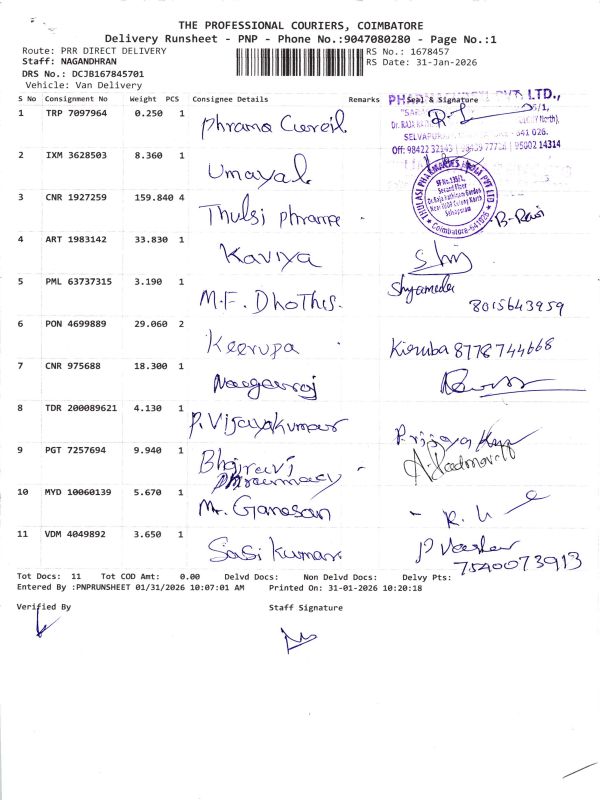 THE PROFESSIONAL COURIERS, COIMBATORE
Delivery Runsheet - PNP - Phone No.:9047080280 - Page No.:1
Route: PRR DIRECT DELIVERY RS No.: 1678457
Staff: NAGANDHRAN RS Date: 31-Jan-2026
DRS No.: DCJB167845701
Vehicle: Van Delivery
S No Consignment No Weight PCS Consignee Details Remarks Seal & Signature
1 TRP 7097964 0.250 1 Phrama Cureil
PVT LTD.,
SELVAPUR
641 026.
Off: 98422 32143 95002 14314
2 IXM 3628503 8.360 1 Umayal
3 CNR 1927259 159.840 4 Thulsi phrame B-Ravi
THULASI PHARMACIES INDIA PVT LTD
Second Floor
Selvapuram
Coimbatore-641026
4 ART 1983142 33.830 1 Kaviya
5 PML 63737315 3.190 1 M.F. Dhothis. Shyamala
8015643959
6 PON 4699889 29.060 2 Keerupa Kiruba 8778744668
7 CNR 975688 18.300 1 Naagarraj
8 TDR 200089621 4.130 1 P. Vijayakumar
9 PGT 7257694 9.940 1 Bhairavi
Phraurmacy
10 MYD 10060139 5.670 1 Mr. Ganesan
11 VDM 4049892 3.650 1 Sasikumar.
7540073913
Tot Docs: 11 Tot COD Amt: 0.00 Delvd Docs: Non Delvd Docs: Delvy Pts:
Entered By :PNPRUNSHEET 01/31/2026 10:07:01 AM Printed On: 31-01-2026 10:20:18
Verified By Staff Signature